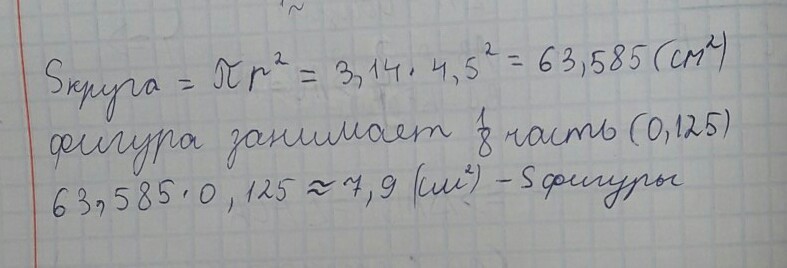 Sкруга = πr² = 3,14 · 4,5² = 63,585 (см²)
фигура занимает 1/8 часть (0,125)
63,585 · 0,125 ≈ 7,9 (см²) - S фигуры